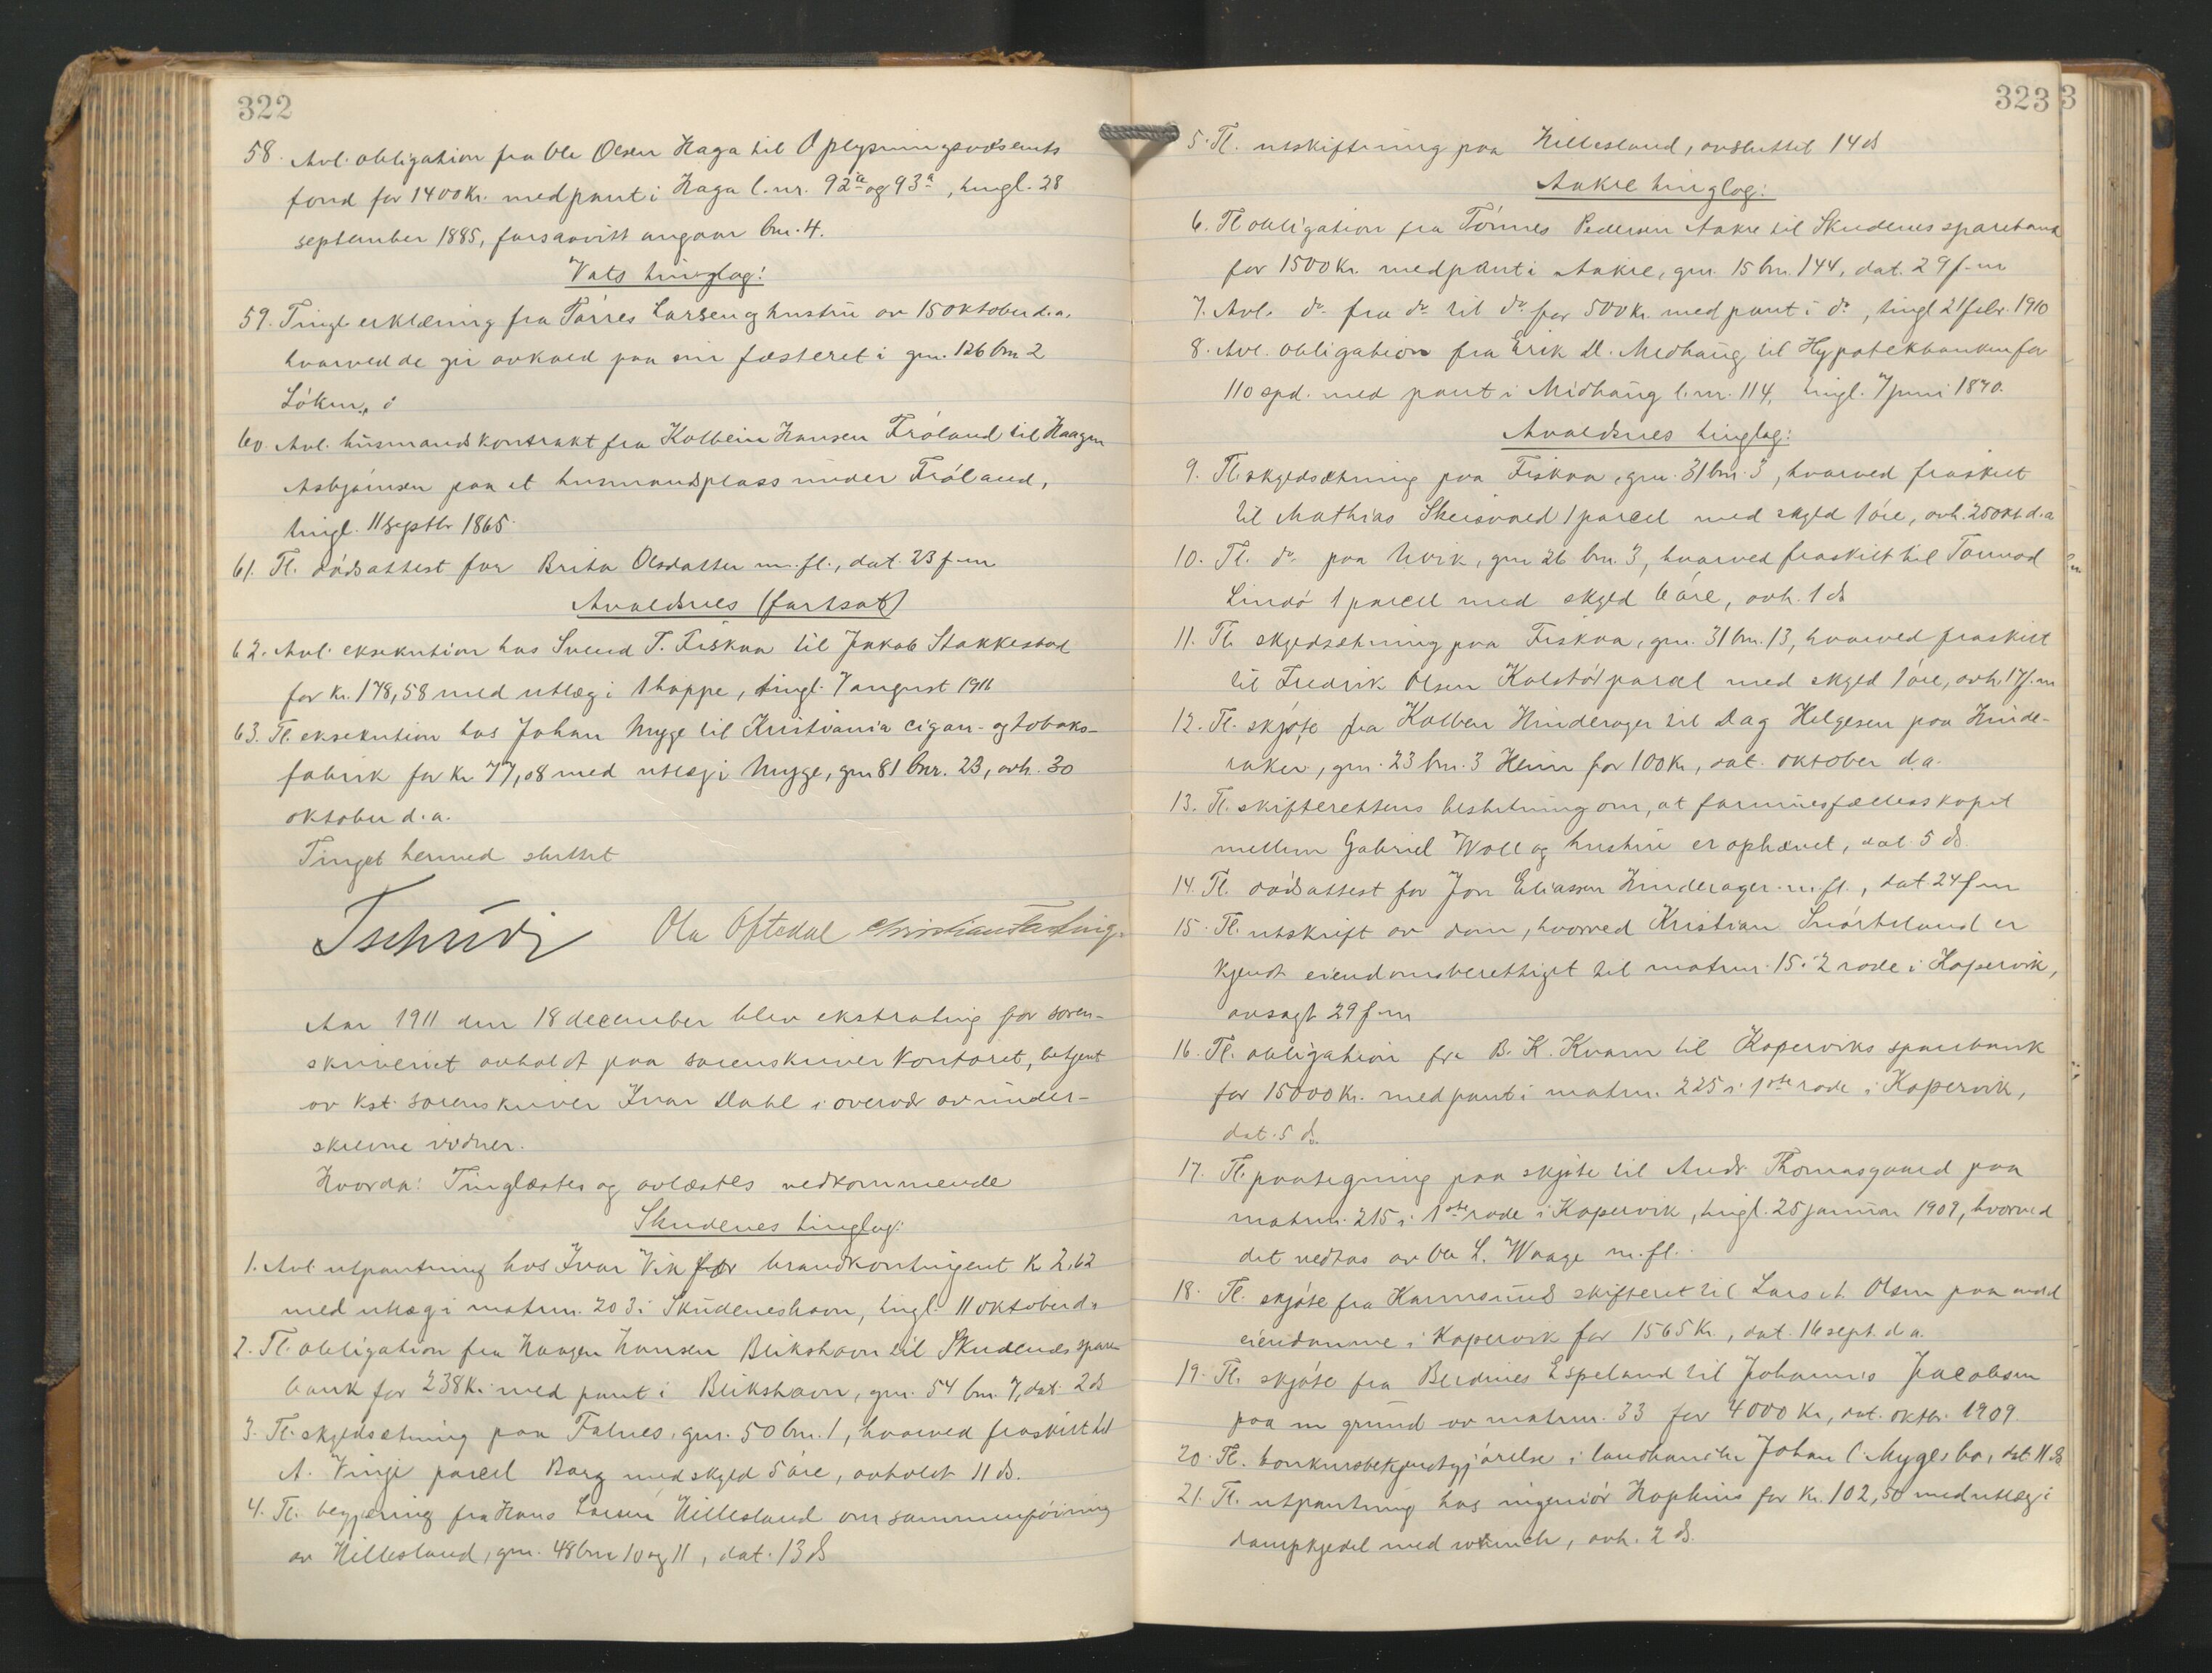 322
58. Avl. obligation fra Ole Olsen Haga til Oplysningsvæsenets
fond for 1400 kr. med pant i Haga l.nr. 92a og 93a, tingl. 28
september 1885, forsaavitt angaar bnr. 4.
Vats tinglag:
59. Tingl. erklæring fra Tørres Larsen og hustru av 15 oktober d.a.
hvorved de gir avkald paa sin festeret i gnr. 126 bnr. 2
Löken
60. Avl. husmandskontrakt fra Kolbein Hansen Fröland til Haagen
Asbjørnsen paa et husmandsplass under Fröland,
tingl. 11 septbr 1865.
61. Tl. dödsattest for Brita Olsdatter m.fl., dat. 23 f.m
Avaldsnes (fortsat)
62. Avl. eksekution hos Svend T. Fiskaa til Jakob Stakkestad
for kr. 178,58 med utlæg i 1 hoppe, tingl. 7 august 1911
63. Tl. eksekution hos Johan Mygge til Kristiania cigar- og tobaks-
fabrik for kr 77,08 med utlæg i Mygge, gnr 81 bnr. 23, avh. 30
oktober d.a.
Tinget hermed sluttet
Tschudi Ola Oftedal
Aar 1911 den 18 december blev ekstrating for soren-
skriveriet avholdt paa sorenskriverkontoret, betjent
av kst. sorenskriver Ivar Dahl i overvær av under-
skrevne vidner.
Hvorda: Tinglæstes og avlæstes vedkommende
Skudenes tinglag:
1. Avl. utpantning hos Ivar Vik for brandkontingent k 2,62
med utlæg i matrnr. 203 i Skudeneshavn, tingl. 11 oktober d.a
2. Tl. obligation fra Haagen Hansen Blikshavn til Skudenes spare-
bank for 238 kr. med pant i Blikshavn, gnr. 54 bnr. 7, dat. 2 ds
3. Tl. skyldsætning paa Falnes, gnr. 50 bnr. 1, hvorved fraskilt til
A. Vinje parcel Borg med skyld 5 øre, avholdt 11 ds.
4. Tl. begjæring fra Hans Larsen Hillesland om sammenföining
av Hillesland, gnr. 48 bnr 10 og 11, dat. 13 ds
323
3
5. Tl. utskiftning paa Hillesland, avsluttet 14 ds
Aakre tinglag:
6. Tl. obligation fra Tönnes Pedersen Aakre til Skudenes sparebank
for 1500 kr. med pant i Aakre, gnr. 15 bnr. 144, dat. 29 f.m
7. Avl. do. fra do til do for 500 kr. med pant i do, tingl 21 febr. 1910
8. Avl. obligation fra Erik Medhaug til Hypotekbanken for
110 spd. med pant i Midhaug l.nr. 114, tingl. 7 juni 1870.
Avaldsnes tinglag:
9. Tl. skyldsætning paa Fiskaa, gnr. 31 bnr. 3, hvorved fraskilt
til Mathias Skeisvold 1 parcel med skyld 1 øre, avh. 25 okt d.a
10. Tl. do. paa Utvik, gnr 26 bnr. 3, hvorved fraskilt til Tormod
Lindö 1 parcel med skyld 6 øre, avh. 1 ds
11. Tl. skyldsætning paa Fiskaa, gnr. 31 bnr. 13, hvorved fraskilt
til Fredrik Olsen Kolstö 1 parcel med skyld 1 øre, avh. 17 f.m
12. Tl. skjöte fra Kolben Hinderager til Dag Helgesen paa Hinde-
raker, gnr. 23 bnr. 3 Heim for 100 kr, dat. oktober d.a.
13. Tl. skifterettens beslutning om, at formuesfællesskapet
mellem Gabriel Woll og hustru er ophævet, dat. 5 ds.
14. Tl. dödsattest for Jon Eliassen Hinderager m.fl., dat. 24 f.m
15. Tl. utskrift av dom, hvorved Kristian Snörteland er
kjendt eiendomsberettiget til matrnr. 15 i 2 rode i Kopervik,
avsagt 29 f.m
16. Tl. obligation fra B. K. Kvam til Koperviks sparebank
for 15000 kr. med pant i matrnr. 225 i 1ste rode i Kopervik,
dat. 5 ds.
17. Tl. paategning paa skjöte til Andr. Thomasgaard paa
matrnr. 215 i 1ste rode i Kopervik, tingl. 25 januar 1909, hvorved
det vedtas av Ole L. Waage m.fl.
18. Tl. skjöte fra Karmsund skifteret til Lars A. Olsen paa
eiendomme i Kopervik for 1565 kr, dat. 16 sept. d.a.
19. Tl. skjöte fra Berdines Espeland til Johannes Jacobsen
paa en grund av matrnr. 33 for 4000 kr, dat. oktbr. 1909.
20. Tl. konkursbekjendtgjörelse i landhandler Johan C. Mygges bo, dat. 11 ds
21. Tl. utpantning hos ingeniör Hopkins for kr. 102,50 med utlæg i
dampkjedel med winch, avh. 2 ds.